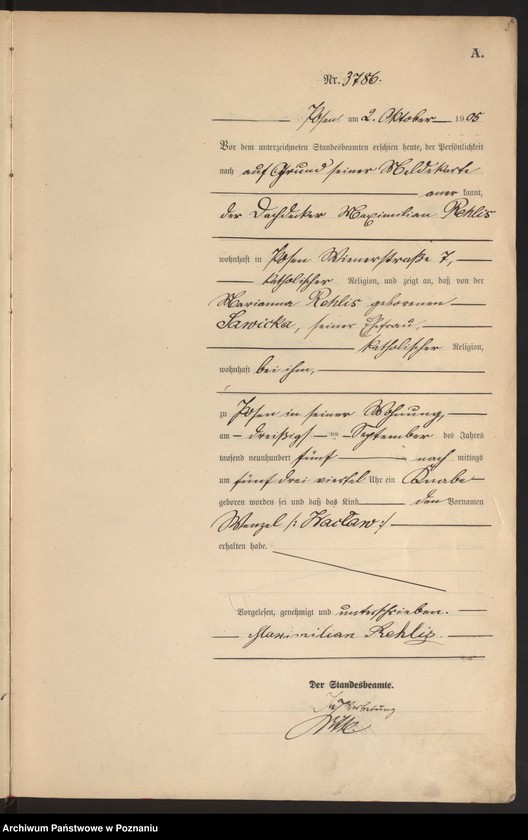 A.
Nr. 3786.
Posen, am 2. Oktober 1905
Vor dem unterzeichneten Standesbeamten erschien heute, der Persönlichkeit
nach auf Grund seiner Meldekarte
aner kannt,
der Dachdecker Maximilian Rehlis
wohnhaft in Posen Wienerstraße 7,
katholischer Religion, und zeigt an, daß von der
Marianna Rehlis geborenen
Sawicka, seiner Ehefrau,
katholischer Religion,
wohnhaft bei ihm,
zu Posen in seiner Wohnung,
am dreißigsten September des Jahres
tausend neunhundert fünf nach mittags
um fünf drei viertel Uhr ein Knabe
geboren worden sei und daß das Kind den Vornamen
Wenzel /: Wacław :/
erhalten habe.
Vorgelesen, genehmigt und unterschrieben.
Maximilian Rehlis
Der Standesbeamte.
In Vertretung
Archiwum Państwowe w Poznaniu